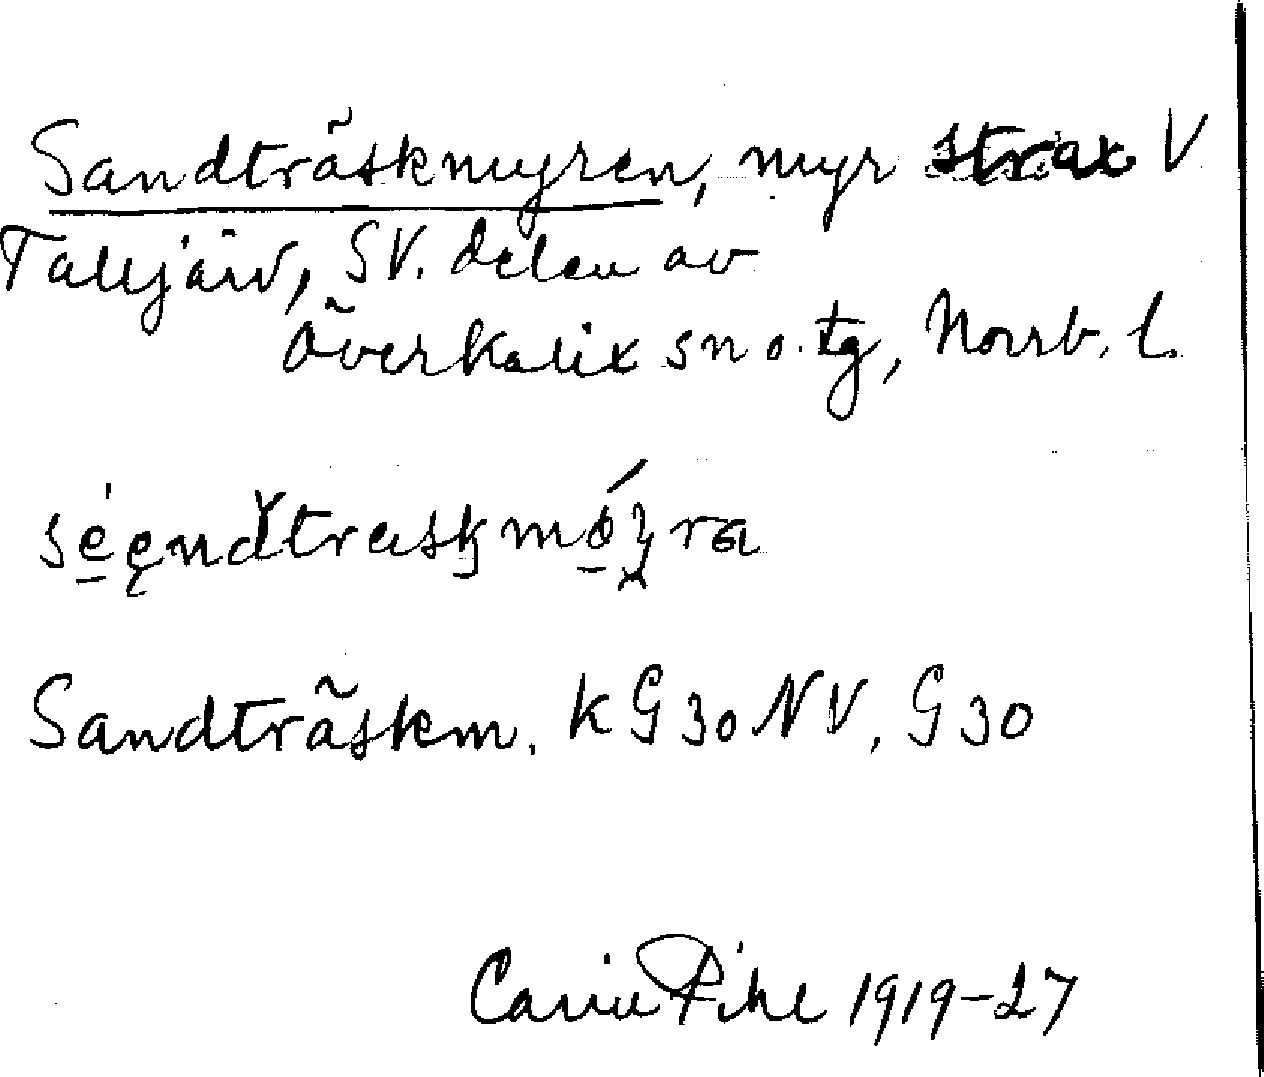 Sandträskmyren, myr strax V
Talljärv, SV. delen av
Överkalix sn o. tg, Norrb. l.
Sandträskm. k G 30 NV, G 30
Carin Pihl 1919-27